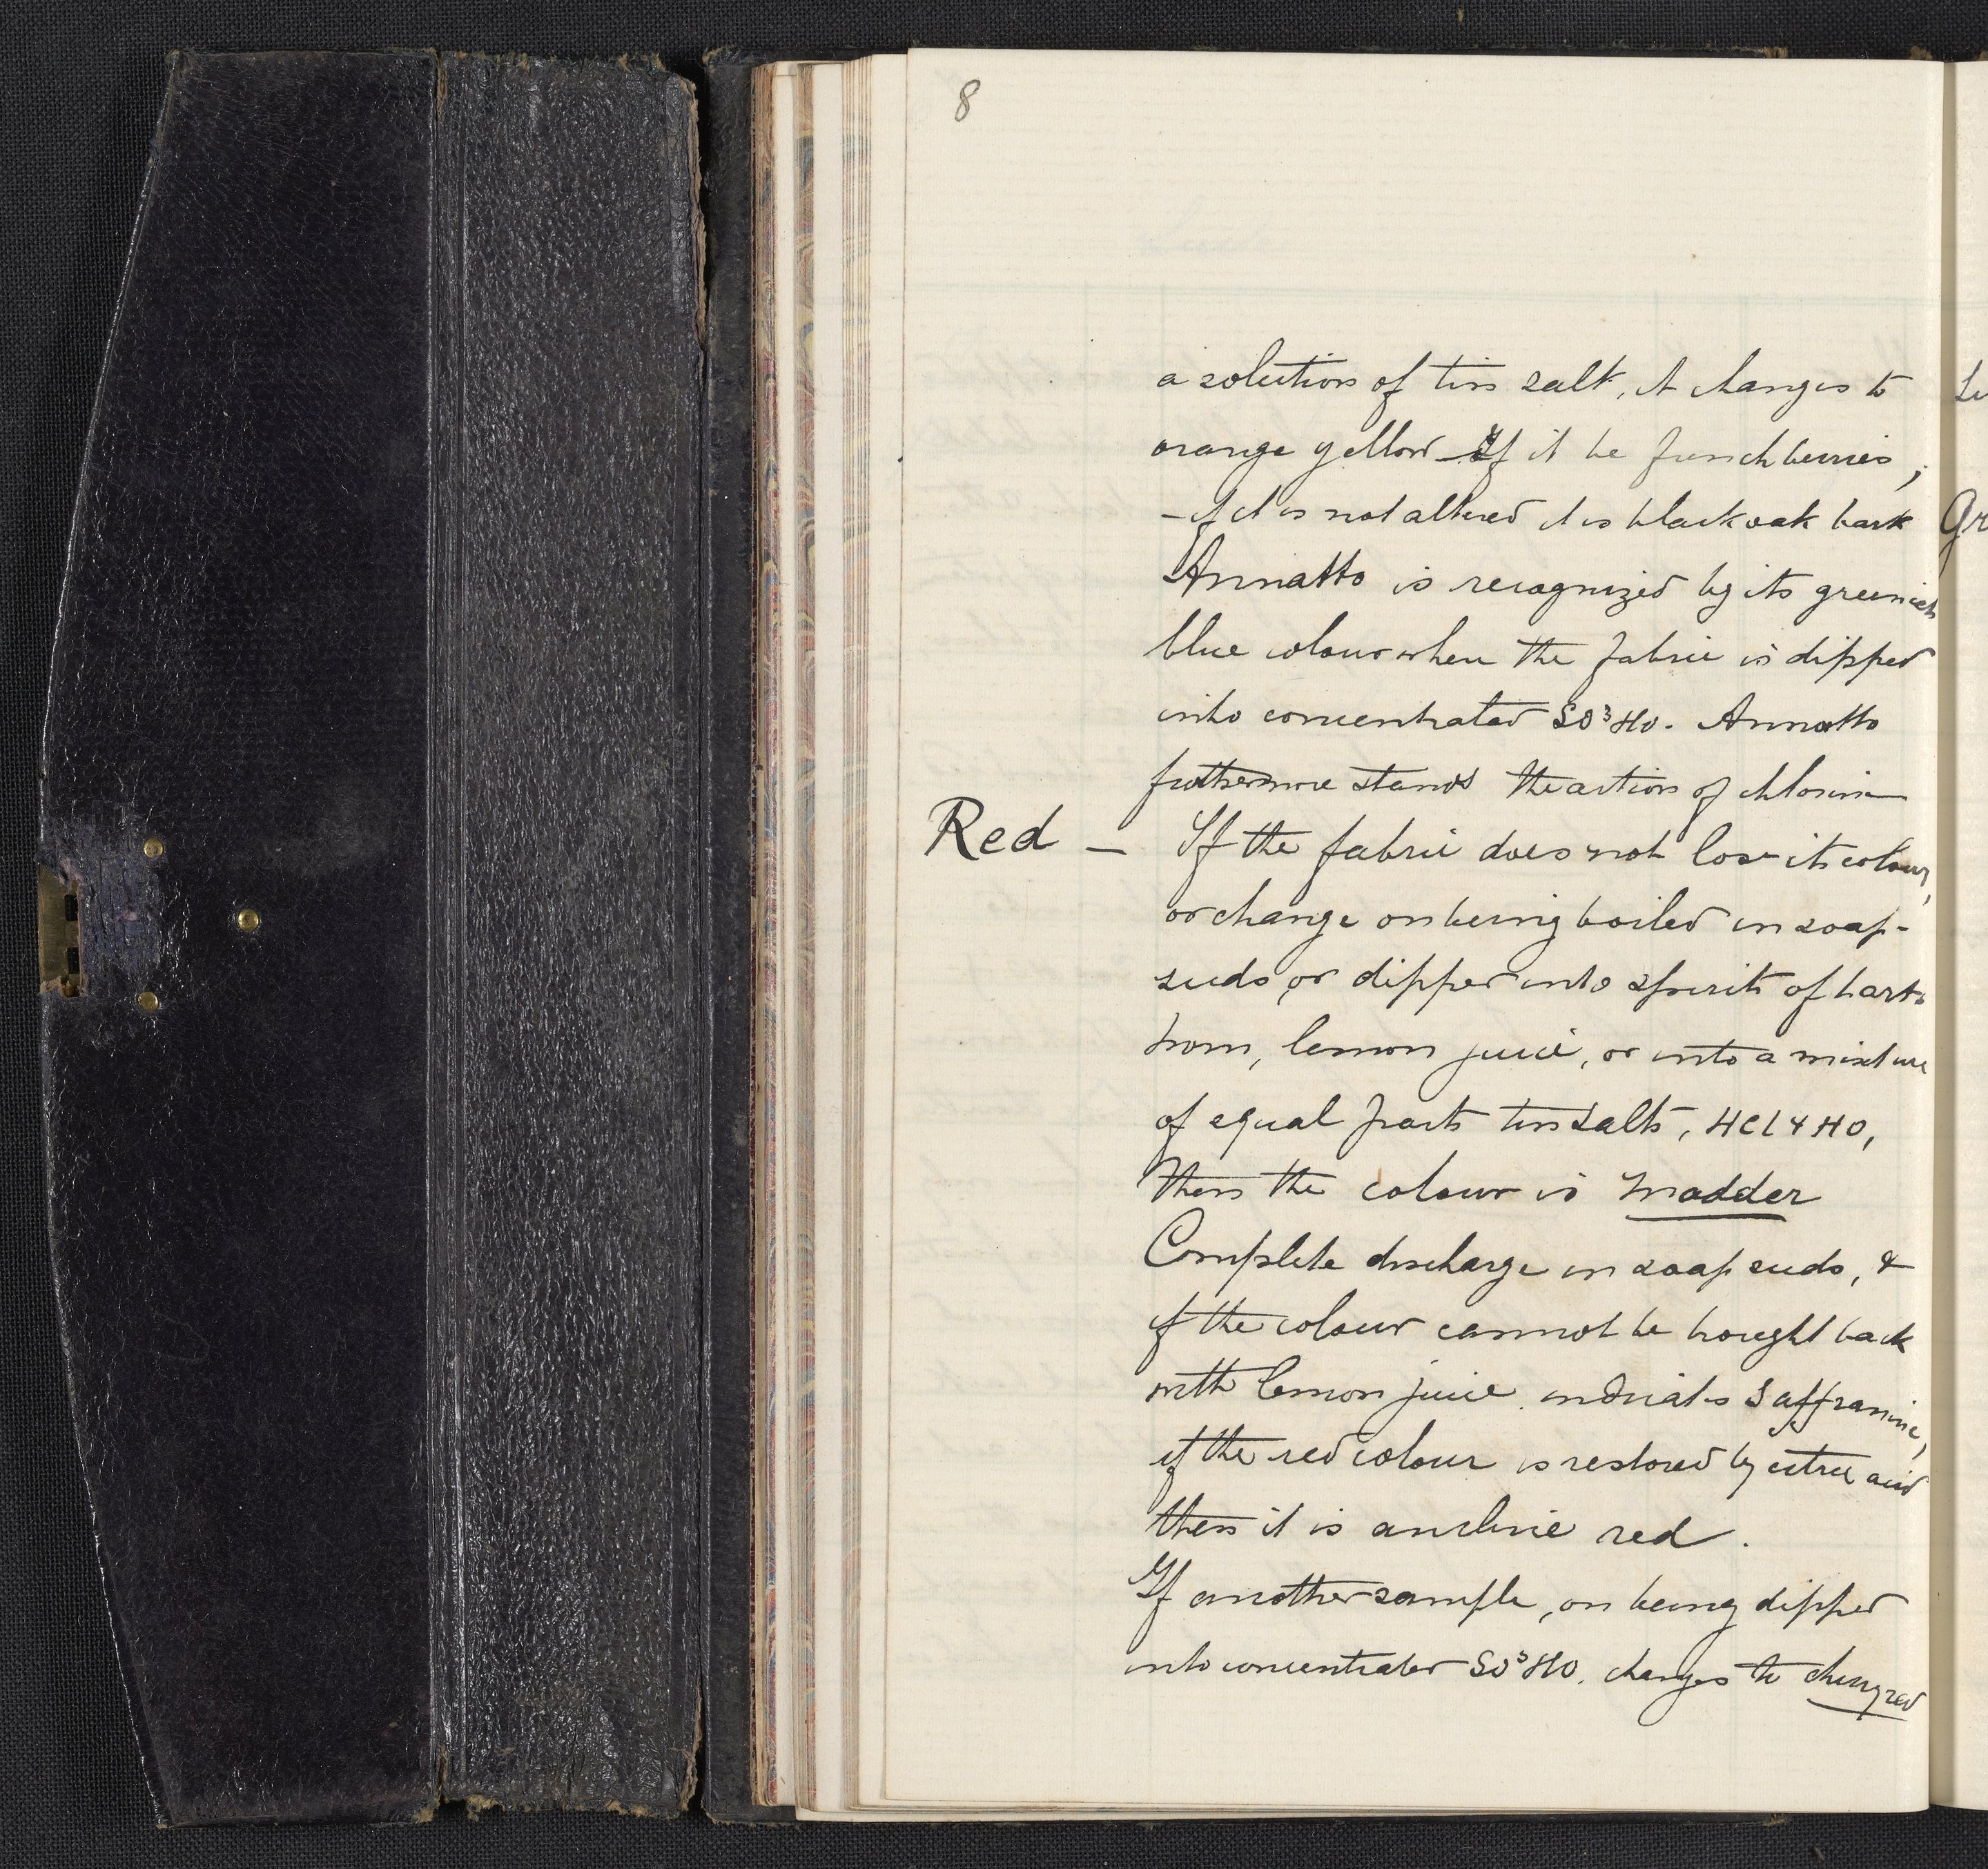 8
a solution of tin salt, it changes to
orange yellow - If it be french berries;
- if it is not altered it is black oak bark
Annatto is recognized by its greenish
blue colour when the fabric is dipped
into concentrated SO³HO. Annatto
furthermore stands the action of chlorine
Red - If the fabric does not lose its colour,
or change on being boiled in soap-
suds, or dipped into spirits of harts
horn, lemon juice, or into a mixture
of equal parts tin salts, HCl & HO,
then the colour is madder
Complete discharge in soap suds, &
if the colour cannot be brought back
with lemon juice indicates Saffranine,
if the red colour is restored by citric acid
then it is aniline red.
If another sample, on being dipped
into concentrated SO³HO. changes to cherry red